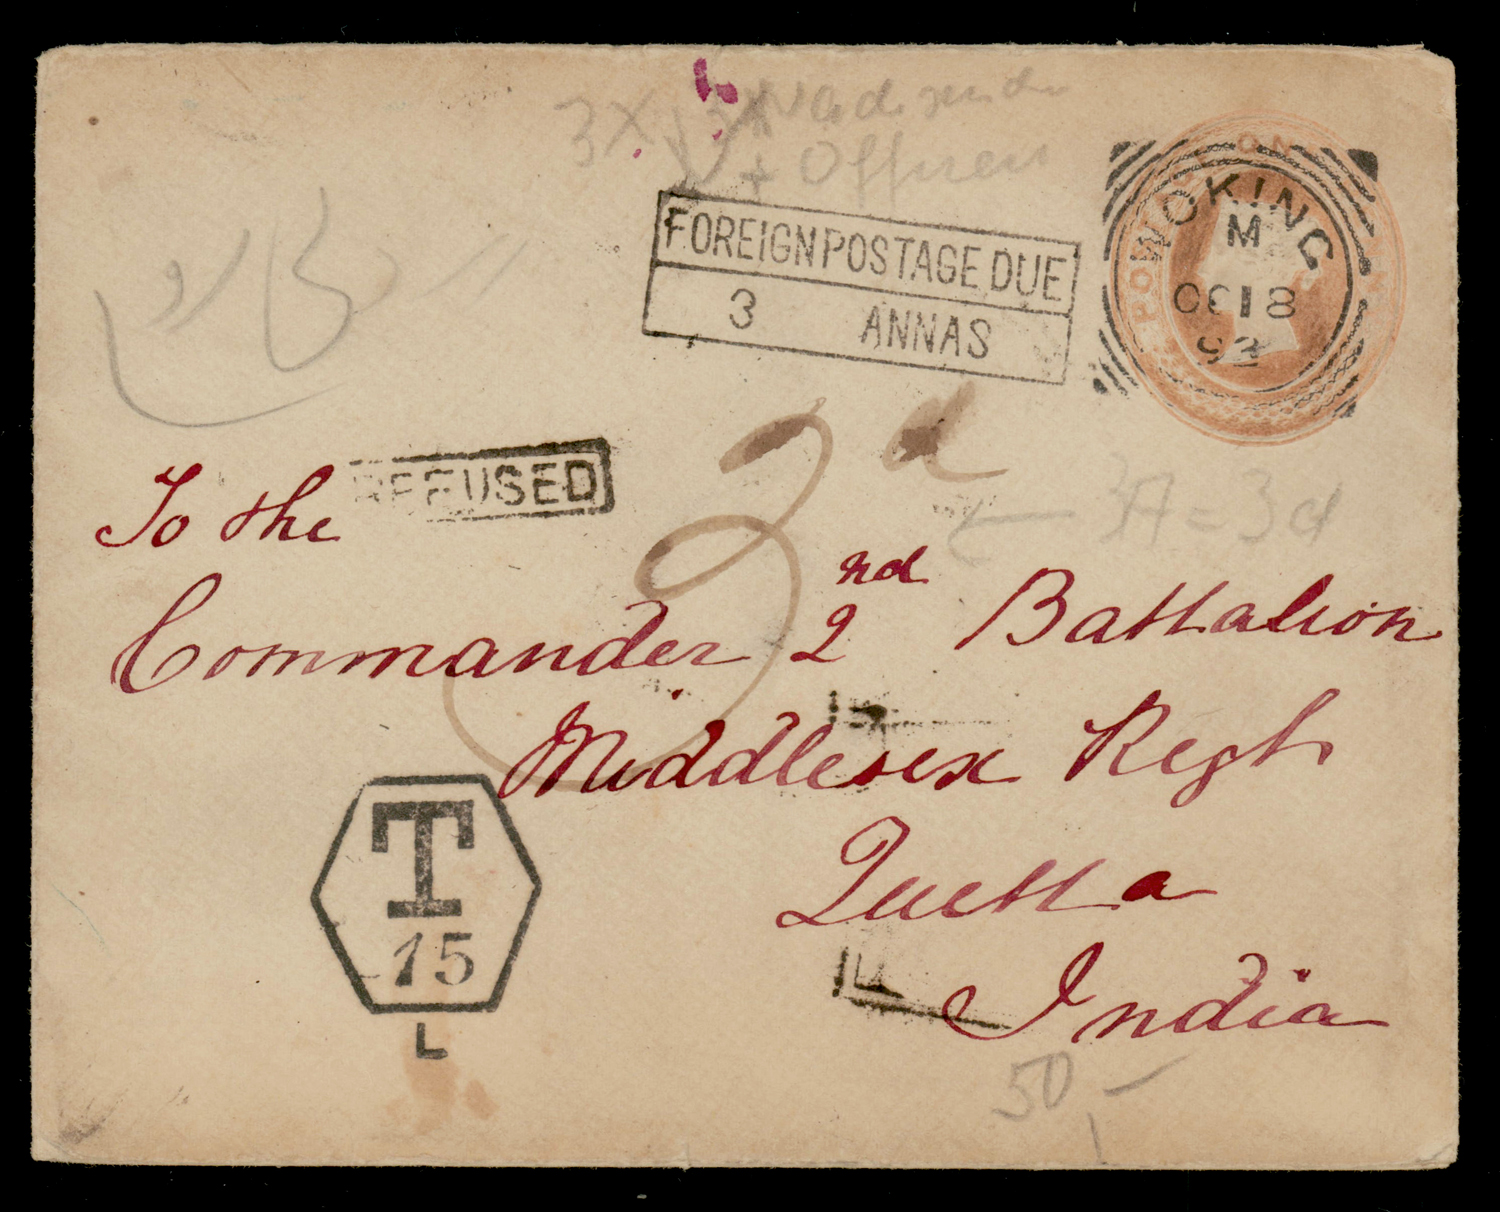 3 X
+ Offnen
FOREIGN POSTAGE DUE
3 ANNAS
WOKING
M
OC 18
92
REFUSED
3 d
3A = 3d
To the
Commander 2nd Battalion
Middlesex Regt
Quetta
India
T
15
L
50,-